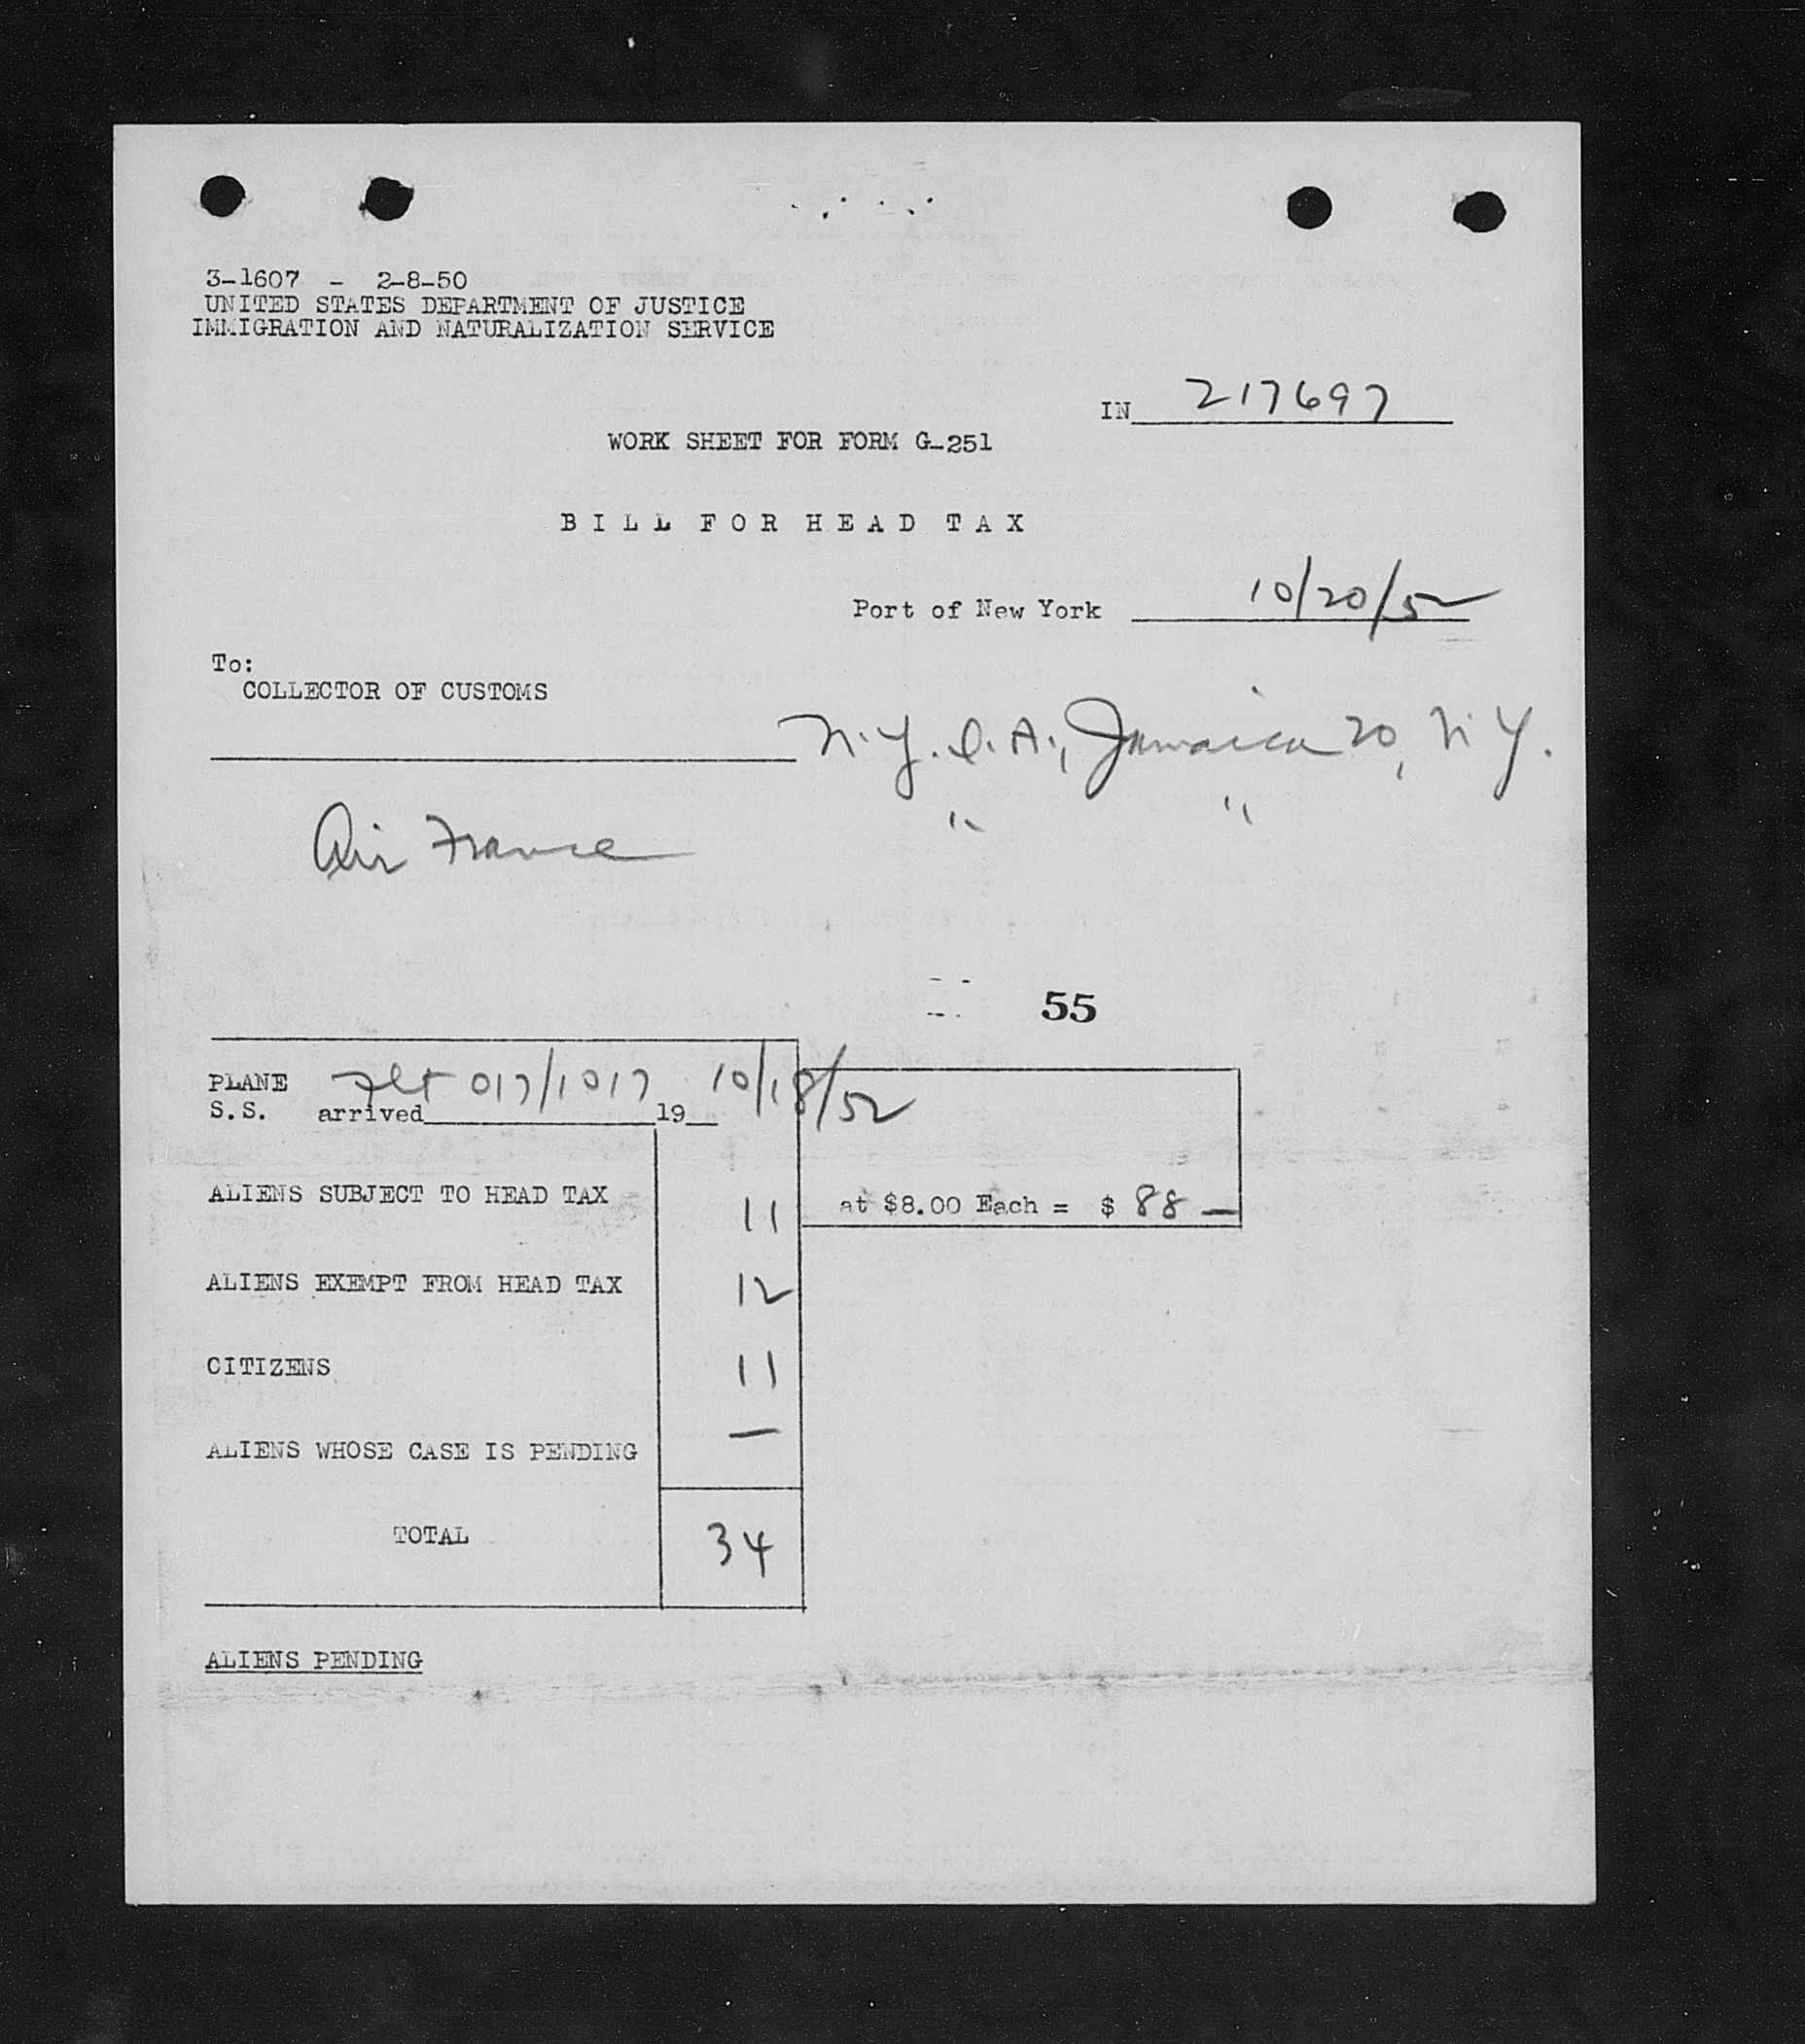 3-1607 - 2-8-50
UNITED STATES DEPARTMENT OF JUSTICE
IMMIGRATION AND NATURALIZATION SERVICE
IN 217697
WORK SHEET FOR FORM G-251
BILL FOR HEAD TAX
Port of New York 10/20/52
To:
COLLECTOR OF CUSTOMS
N.Y.I.A., Jamaica 20, N.Y.
Air France " "
55
PLANE Flt 017/1017 10/18/52
S.S. arrived 19
ALIENS SUBJECT TO HEAD TAX 11 at $8.00 Each = $ 88 —
ALIENS EXEMPT FROM HEAD TAX 12
CITIZENS 11
ALIENS WHOSE CASE IS PENDING —
TOTAL 34
ALIENS PENDING